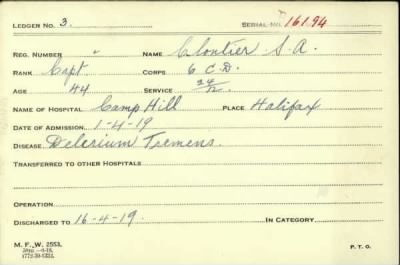 LEDGER NO. 3. SERIAL NO. 16194
REG. NUMBER " NAME Clontier S. A.
RANK Capt. CORPS 6 C. D.
AGE 44 SERVICE 24/12
NAME OF HOSPITAL Camp Hill PLACE Halifax
DATE OF ADMISSION 1-4-19
DISEASE Delerium Tremens.
TRANSFERRED TO OTHER HOSPITALS
OPERATION
DISCHARGED TO 16-4-19. IN CATEGORY
M. F. W. 2553.
1772-39-1352.
P. T. O.